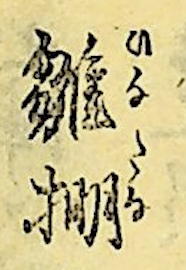 雛棚
ひなたな